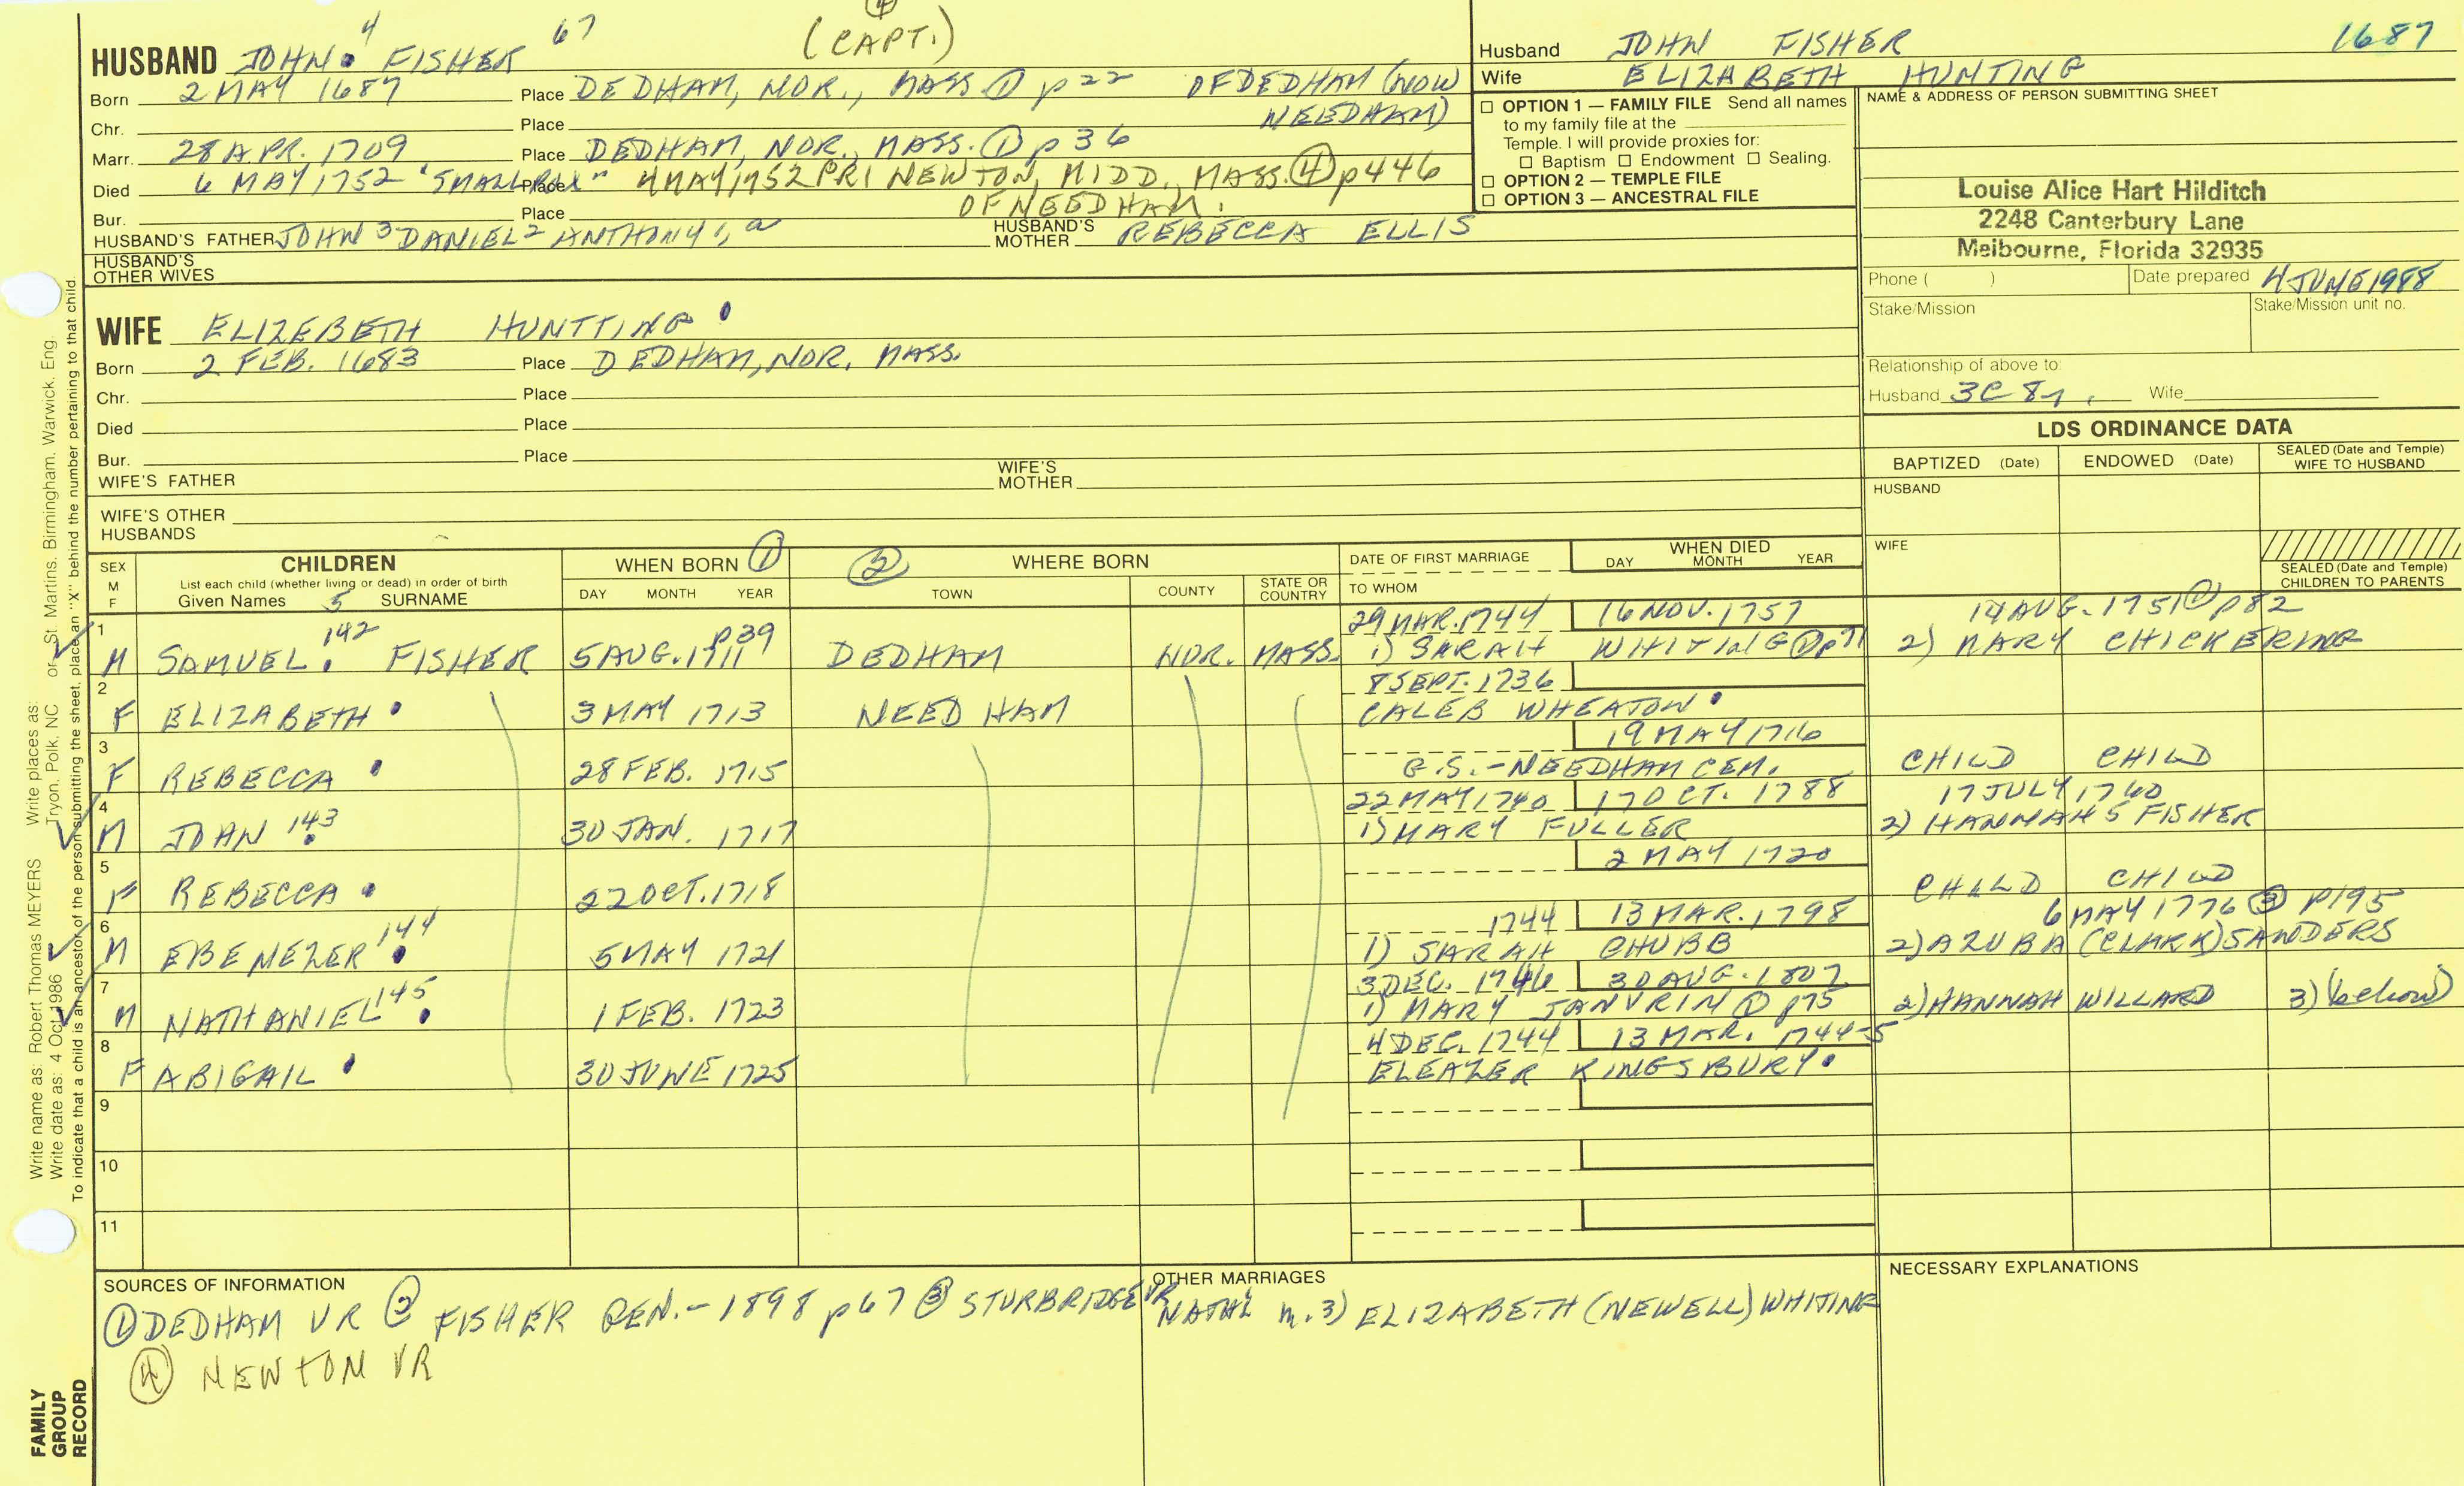 4
(CAPT.)
HUSBAND JOHN 4 FISHER 67
Born 2 MAY 1687 Place DEDHAM, NOR., MASS ① p 22 OF DEDHAM (NOW
NEEDHAM)
Chr. Place
Marr. 28 APR. 1709 Place DEDHAM, NOR., MASS. ① p 36
Died 6 MAY 1752 "SMALL POX" Place 4 MAY 1752 PR1 NEWTON, MIDD., MASS. ④ p446
Bur. Place OF NEEDHAM.
HUSBAND'S FATHER JOHN 3 DANIEL 2 ANTHONY 1, 2 HUSBAND'S MOTHER REBECCA ELLIS
HUSBAND'S
OTHER WIVES
Husband JOHN FISHER 1687
Wife ELIZABETH HUNTING
☐ OPTION 1 — FAMILY FILE Send all names
to my family file at the
Temple. I will provide proxies for:
☐ Baptism ☐ Endowment ☐ Sealing.
☐ OPTION 2 — TEMPLE FILE
☐ OPTION 3 — ANCESTRAL FILE
NAME & ADDRESS OF PERSON SUBMITTING SHEET
Louise Alice Hart Hilditch
2248 Canterbury Lane
Melbourne, Florida 32935
Phone ( ) Date prepared 4 JUNE 1988
Stake/Mission Stake/Mission unit no.
Relationship of above to:
Husband 3C 8 Wife
WIFE ELIZEBETH HUNTTING
Born 2 FEB. 1683 Place DEDHAM, NOR. MASS.
Chr. Place
Died Place
Bur. Place
WIFE'S FATHER WIFE'S MOTHER
WIFE'S OTHER
HUSBANDS
LDS ORDINANCE DATA
BAPTIZED (Date) ENDOWED (Date) SEALED (Date and Temple) WIFE TO HUSBAND
HUSBAND
WIFE
SEALED (Date and Temple)
CHILDREN TO PARENTS
SEX M F
CHILDREN
List each child (whether living or dead) in order of birth
Given Names 5 SURNAME
WHEN BORN ①
DAY MONTH YEAR
② WHERE BORN
TOWN COUNTY STATE OR COUNTRY
DATE OF FIRST MARRIAGE
TO WHOM
WHEN DIED
DAY MONTH YEAR
1 29 MAR. 1744 16 NOV. 1757 14 AUG. 1751 ① p82
M SAMUEL 142 FISHER 5 AUG. 1711 p39 DEDHAM NOR. MASS. 1) SARAH WHITING ① p71 2) MARY CHICKERING
2 8 SEPT. 1736
F ELIZABETH 3 MAY 1713 NEEDHAM CALEB WHEATON
3 19 MAY 1716
F REBECCA 28 FEB. 1715 G.S.-NEEDHAM CEM. CHILD CHILD
4 22 MAY 1740 17 OCT. 1788 17 JULY 1760
M JOHN 143 30 JAN. 1717 1) MARY FULLER 2) HANNAH 5 FISHER
5 2 MAY 1720
F REBECCA 22 OCT. 1718 CHILD CHILD
6 1744 13 MAR. 1798 6 MAY 1776 ③ P195
M EBENEZER 144 5 MAY 1721 1) SARAH CHUBB 2) AZUBA (CLARK) SANDERS
7 3 DEC. 1746 30 AUG. 1807
M NATHANIEL 145 1 FEB. 1723 1) MARY JANVRIN ① p75 2) HANNAH WILLARD 3) (below)
8 4 DEC. 1744 13 MAR. 1744-5
F ABIGAIL 30 JUNE 1725 ELEAZER KINGSBURY
9
10
11
SOURCES OF INFORMATION
① DEDHAM VR ② FISHER GEN.- 1898 p67 ③ STURBRIDGE VR
④ NEWTON VR
OTHER MARRIAGES
NATHL m. 3) ELIZABETH (NEWELL) WHITING
NECESSARY EXPLANATIONS
Write name as: Robert Thomas MEYERS Write places as: Tryon, Polk, NC or St. Martins, Birmingham, Warwick, Eng.
Write date as: 4 Oct 1986
To indicate that a child is an ancestor of the person submitting the sheet, place an "X" behind the number pertaining to that child.
FAMILY
GROUP
RECORD